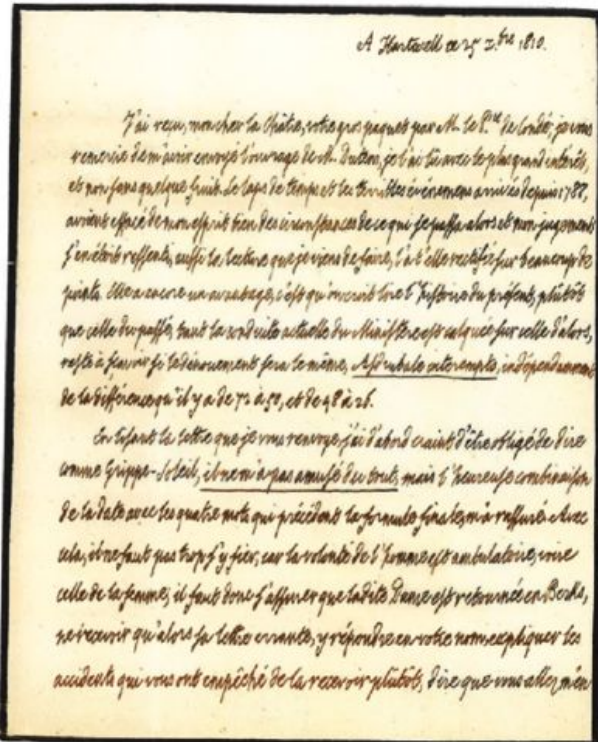 A Hartwell ce 25 X.bre 1810.
J'ai reçu, mon cher la Châtre, votre gros paquet par M. le P.ce de Condé, je vous
remercie de m'avoir envoyé l'ouvrage de M. Dutens, je l'ai lu avec le plus grand intérêt,
et non sans quelque fruit. Le laps de temps et les terribles événemens arrivés depuis 1788,
avoient effacé de mon esprit bien des circonstances de ce qui se passa alors et mon jugement
s'en étoit ressenti, aussi la lecture que je viens de faire, l'a t'elle rectifié sur beaucoup de
points. Elle a encore un avantage, c'est qu'on croit lire l'histoire du présent, plutôt
que celle du passé, tant la conduite actuelle du Ministère est calquée sur celle d'alors,
reste à sçavoir si le dénouement sera le même, Asdrubale interempto, indépendamment
de la différence qu'il y a de 72 à 50, et de 48 à 26.
En lisant la lettre que je vous renvoye, j'ai d'abord craint d'être obligé de dire
comme Grippe-Soleil, il ne m'a pas amusé du tout, mais l'heureuse combinaison
de la date avec les quatre mots qui précédent la formule finale, m'a rassuré. Avec
cela, il ne faut pas trop s'y fier, car la volonté de l'homme est ambulatoire, voire
celle de la femme, il faut donc s'assurer que ladite Dame est retournée en Berks,
ne recevoir qu'alors sa lettre errante, y répondre en votre nom, expliquer les
accidents qui vous ont empêché de la recevoir plutôt, dire que vous allez m'en